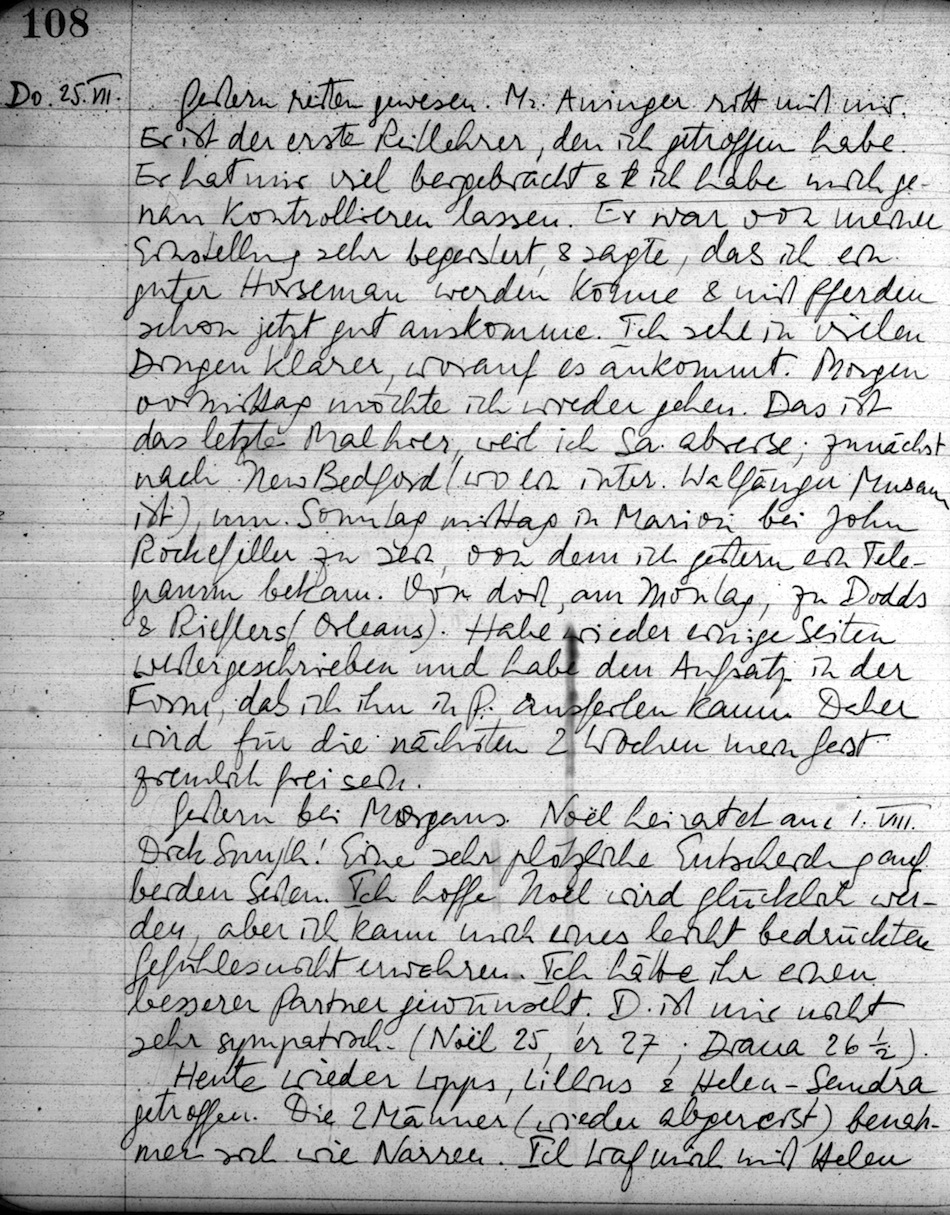 108
Do. 25. VII. Gestern reiten gewesen. Mr. Aninger ritt mit mir.
Er ist der erste Reitlehrer, den ich getroffen habe.
Er hat mir viel beigebracht & ich habe mich ge-
nau kontrollieren lassen. Er war von meiner
Einstellung sehr begeistert, & sagte, das ich ein
guter Horseman werden könne & mit Pferden
schon jetzt gut auskomme. Ich sehe in vielen
Dingen klarer, worauf es ankommt. Morgen
vormittag möchte ich wieder gehen. Das ist
das letzte Mal hier, weil ich Sa. abreise; zunächst
nach New Bedford (wo ein inter. Walfänger Museum
ist), um Sonntag mittag in Marion bei John
Rockefeller zu sein, von dem ich gestern ein Tele-
gramm bekam. Von dort, am Montag, zu Dodds
& Rieflers (Orleans). Habe wieder einige Seiten
weitergeschrieben und habe den Aufsatz in der
Form, das ich ihn in P. ausfeilen kann. Daher
wird für die nächsten 2 Wochen mein Geist
ziemlich frei sein.
Gestern bei Morgans. Noël heiratet am 1. VIII.
Dick Smyth! Eine sehr plötzliche Entscheidung auf
beiden Seiten. Ich hoffe Noël wird glücklich wer-
den, aber ich kann mich eines leicht bedrückten
Gefühles nicht erwehren. Ich hätte ihr einen
besseren Partner gewünscht. D. ist mir nicht
sehr sympatisch. (Noël 25, er 27; Diana 26 ½).
Heute wieder Lipps, Lillous & Helen-Sandra
getroffen. Die 2 Männer (wieder abgereist) benah-
men sich wie Narren. Ich traf mich mit Helen